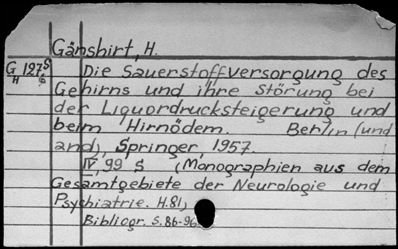 Gänshirt, H.
G 127,5
H 6
Die Sauerstoffversorgung des
Gehirns und ihre Störung bei
der Liquordrucksteigerung und
beim Hirnödem. Berlin (und
and), Springer, 1957.
IV, 99 S (Monographien aus dem
Gesamtgebiete der Neurologie und
Psychiatrie. H.81)
Bibliogr. S.86-96